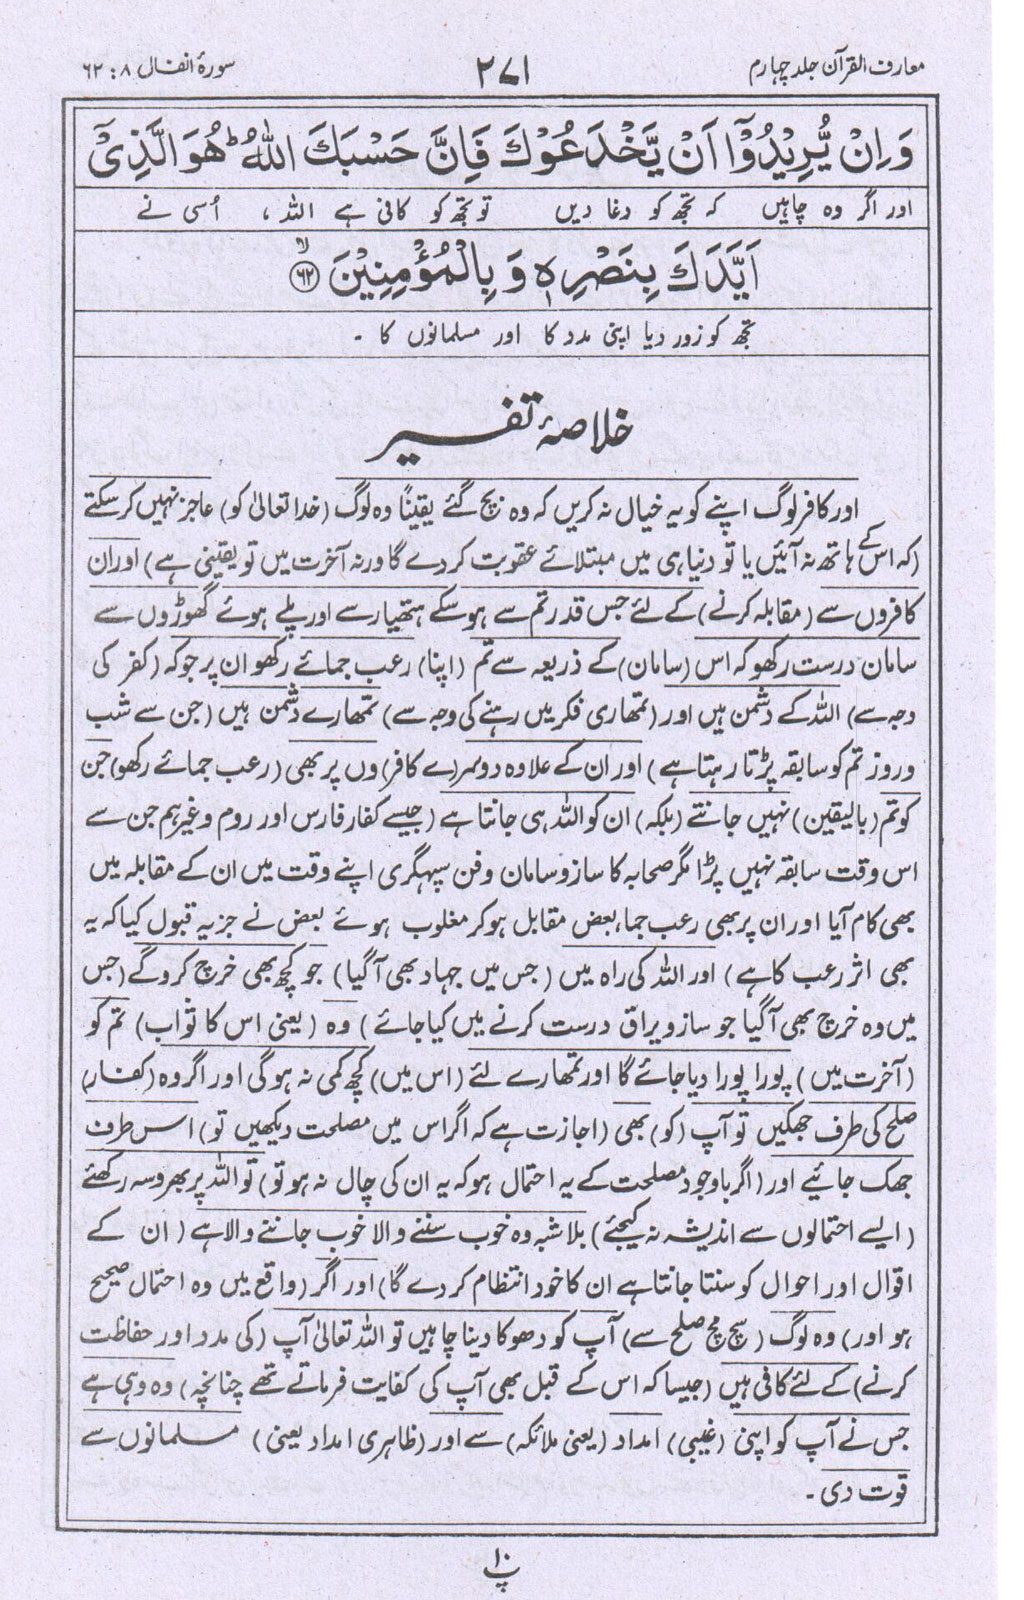 معارف القرآن جلد چہارم ۲۷۱ سورۂ انفال ۸ : ۶۲
وَاِنْ يُّرِيْدُوْٓا اَنْ يَّخْدَعُوْكَ فَاِنَّ حَسْبَكَ اللّٰهُ ؕ هُوَ الَّذِيْٓ
اور اگر وہ چاہیں کہ تجھ کو دغا دیں تو تجھ کو کافی ہے اللہ ، اُسی نے
اَيَّدَكَ بِنَصْرِهٖ وَ بِالْمُؤْمِنِيْنَ ۙ ﴿۶۲﴾
تجھ کو زور دیا اپنی مدد کا اور مسلمانوں کا ۔
خلاصۂ تفسیر
اور کافر لوگ اپنے کو یہ خیال نہ کریں کہ وہ بچ گئے یقیناً وہ لوگ (خدا تعالیٰ کو) عاجز نہیں کرسکتے
(کہ اس کے ہاتھ نہ آئیں یا تو دنیا ہی میں مبتلائے عقوبت کر دے گا ورنہ آخرت میں تو یقینی ہے) اور ان
کافروں سے (مقابلہ کرنے) کے لئے جس قدر تم سے ہوسکے ہتھیار سے اور پلے ہوئے گھوڑوں سے
سامان درست رکھو کہ اس (سامان) کے ذریعہ سے تم (اپنا) رعب جمائے رکھو ان پر جو کہ (کفر کی
وجہ سے) اللہ کے دشمن ہیں اور (تمھاری فکر میں رہنے کی وجہ سے) تمھارے دشمن ہیں (جن سے شب
و روز تم کو سابقہ پڑتا رہتا ہے) اور ان کے علاوہ دوسر(ے کافر)وں پر بھی (رعب جمائے رکھو) جن
کو تم (بالیقین) نہیں جانتے (بلکہ) ان کو اللہ ہی جانتا ہے (جیسے کفار فارس اور روم وغیرہم جن سے
اس وقت سابقہ نہیں پڑا مگر صحابہ کا ساز و سامان و فن سپہگری اپنے وقت میں ان کے مقابلہ میں
بھی کام آیا اور ان پر بھی رعب جما، بعض مقابل ہوکر مغلوب ہوئے بعض نے جزیہ قبول کیا کہ یہ
بھی اثر رعب کا ہے) اور اللہ کی راہ میں (جس میں جہاد بھی آگیا) جو کچھ بھی خرچ کروگے (جس
میں وہ خرچ بھی آگیا جو ساز و یراق درست کرنے میں کیا جائے) وہ (یعنی اس کا ثواب) تم کو
(آخرت میں) پورا پورا دیا جائے گا اور تمھارے لئے (اس میں) کچھ کمی نہ ہوگی اور اگر وہ (کفار)
صلح کی طرف جھکیں تو آپ (کو) بھی (اجازت ہے کہ اگر اس میں مصلحت دیکھیں تو) اس طرف
جھک جائیے اور (اگر باوجود مصلحت کے یہ احتمال ہو کہ یہ ان کی چال نہ ہو تو) تو اللہ پر بھروسہ رکھئے
(ایسے احتمالوں سے اندیشہ نہ کیجئے) بلاشبہ وہ خوب سننے والا خوب جاننے والا ہے (ان کے
اقوال اور احوال کو سنتا جانتا ہے ان کا خود انتظام کر دے گا) اور اگر (واقع میں وہ احتمال صحیح
ہو اور) وہ لوگ (سچ مچ صلح سے) آپ کو دھوکا دینا چاہیں تو اللہ تعالیٰ آپ (کی مدد اور حفاظت
کرنے) کے لئے کافی ہیں (جیسا کہ اس کے قبل بھی آپ کی کفایت فرماتے تھے چنانچہ) وہ وہی ہے
جس نے آپ کو اپنی (غیبی) امداد (یعنی ملائکہ) سے اور (ظاہری امداد یعنی) مسلمانوں سے
قوت دی ۔
پ ۱۰